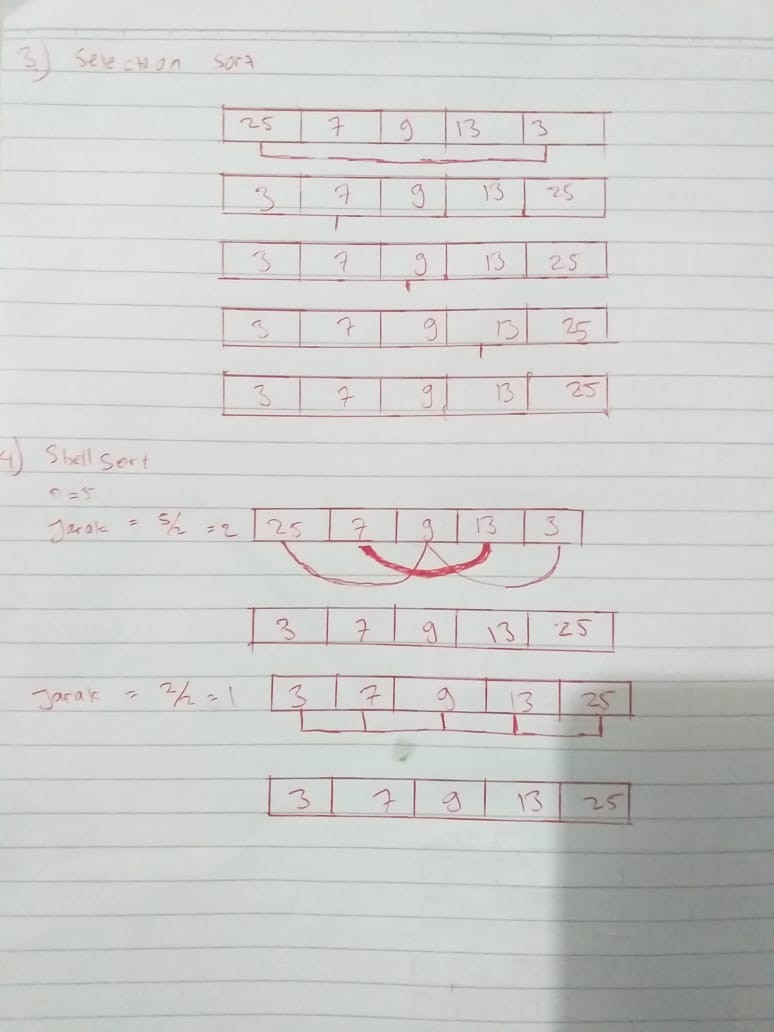 3) Selection Sort
25 7 9 13 3
3 7 9 13 25
3 7 9 13 25
3 7 9 13 25
3 7 9 13 25
4) Shell Sort
n = 5
Jarak = 5/2 = 2 25 7 9 13 3
3 7 9 13 25
Jarak = 2/2 = 1 3 7 9 13 25
3 7 9 13 25